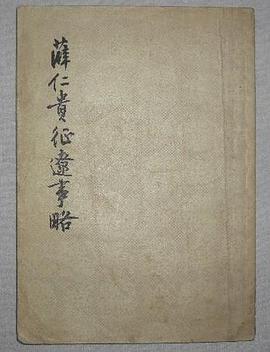 薛仁貴征遼事略